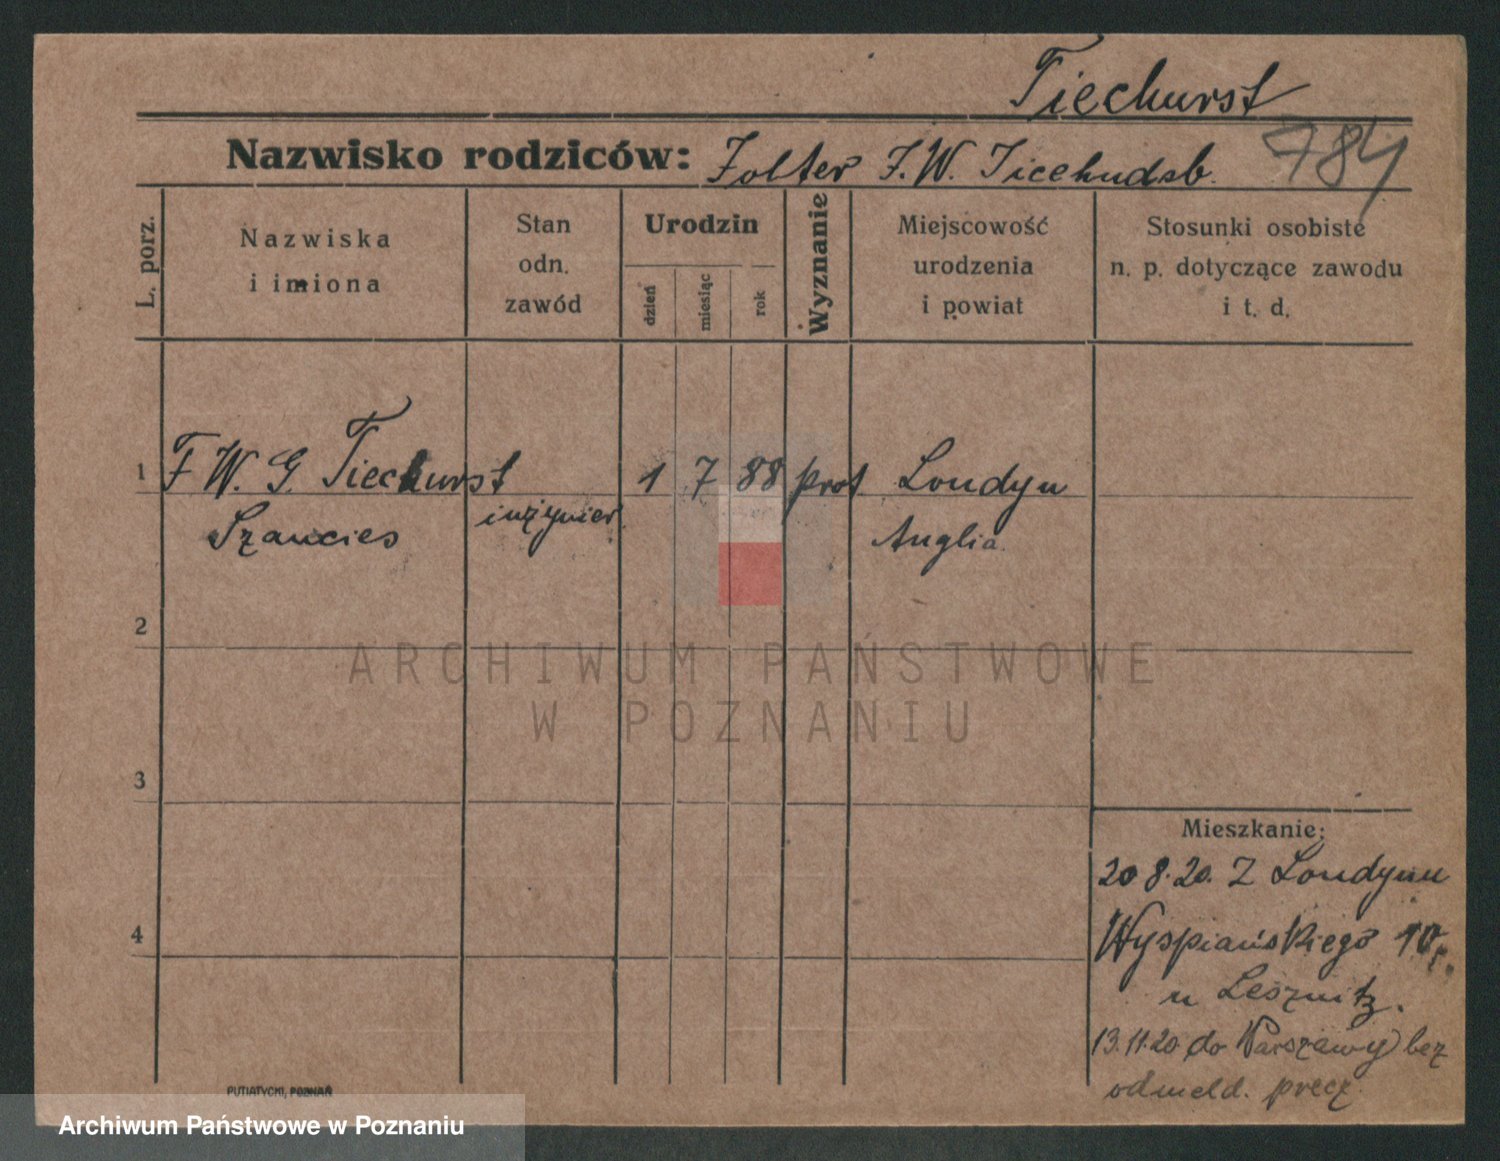 Tiechurst
Nazwisko rodziców: Zolter F.W. Ticehudsb. 784
L. porz.
Nazwiska
i imiona
Stan
odn.
zawód
Urodzin
dzień
miesiąc
rok
Wyznanie
Miejscowość
urodzenia
i powiat
Stosunki osobiste
n. p. dotyczące zawodu
i t. d.
1 F W. G. Tiechurst 1 7 88 prot Londyn
inżynier
Anglia.
2
ARCHIWUM PAŃSTWOWE
W POZNANIU
3
Mieszkanie:
20 8.20. Z Londynu
4 Wyspiańskiego 10
u Lesznitz.
13.11.20 do Warszawy bez
odmeld. precz.
PUTIATYCKI, POZNAŃ
Archiwum Państwowe w Poznaniu